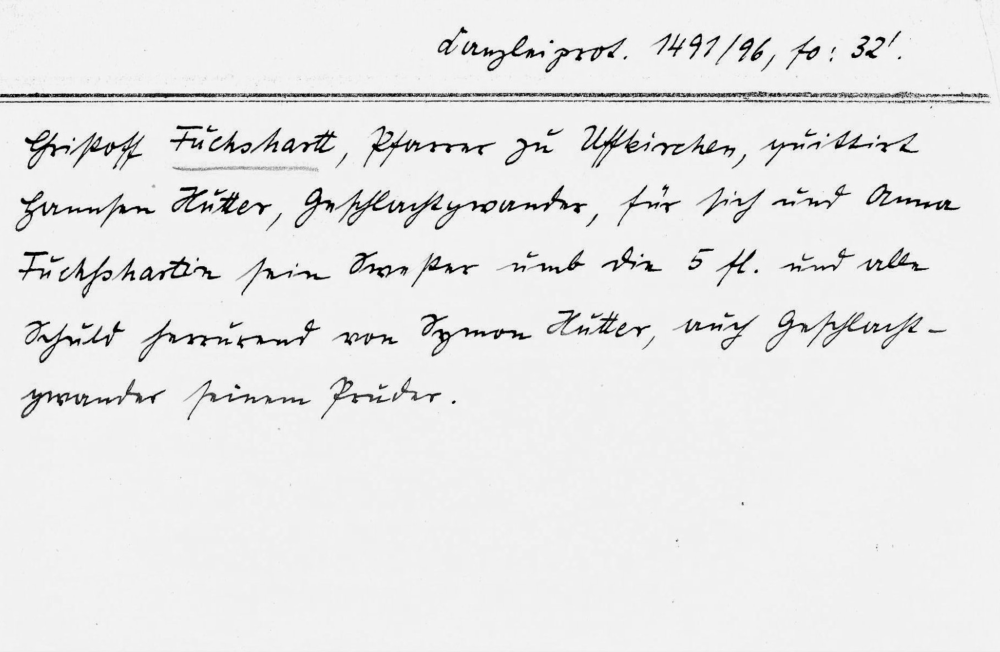 Kanzleiprot. 1491/96, fo: 32'.
Christoff Fuchshartt, Pfarrer zu Uffkirchen, quittirt
Hannsen Hutter, Geschlachtgwander, für sich und Anna
Fuchßhartin sein Swester umb die 5 fl. und alle
Schuld herrurend von Symon Hutter, auch Geschlacht-
gwander seinem Pruder.